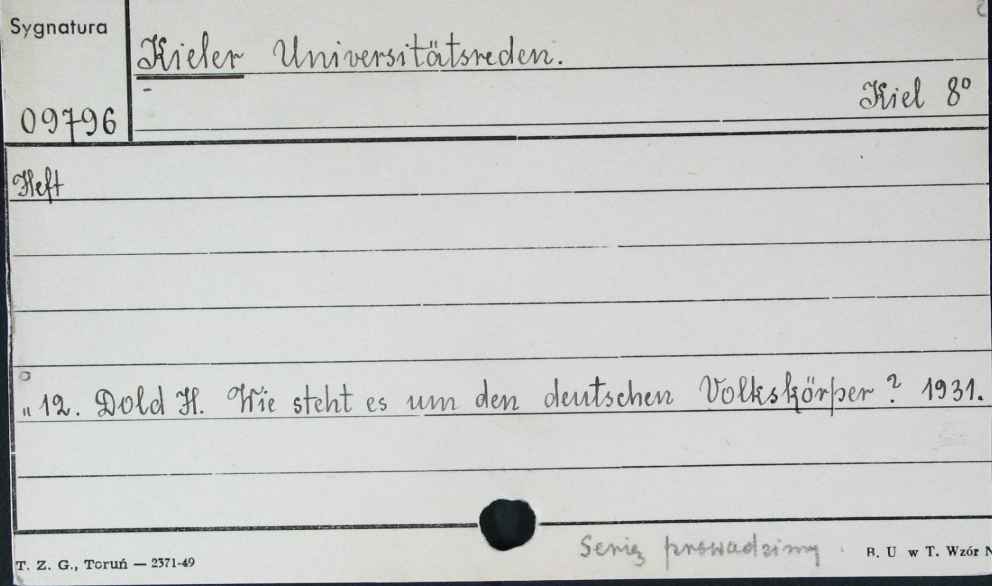 Sygnatura
Kieler Universitätsreden.
Kiel 8º
09796
Heft
„ 12. Dold H. Wie steht es um den deutschen Volkskörper? 1931.
Serię prowadzimy
T. Z. G., Toruń — 2371-49
B. U w T. Wzór N